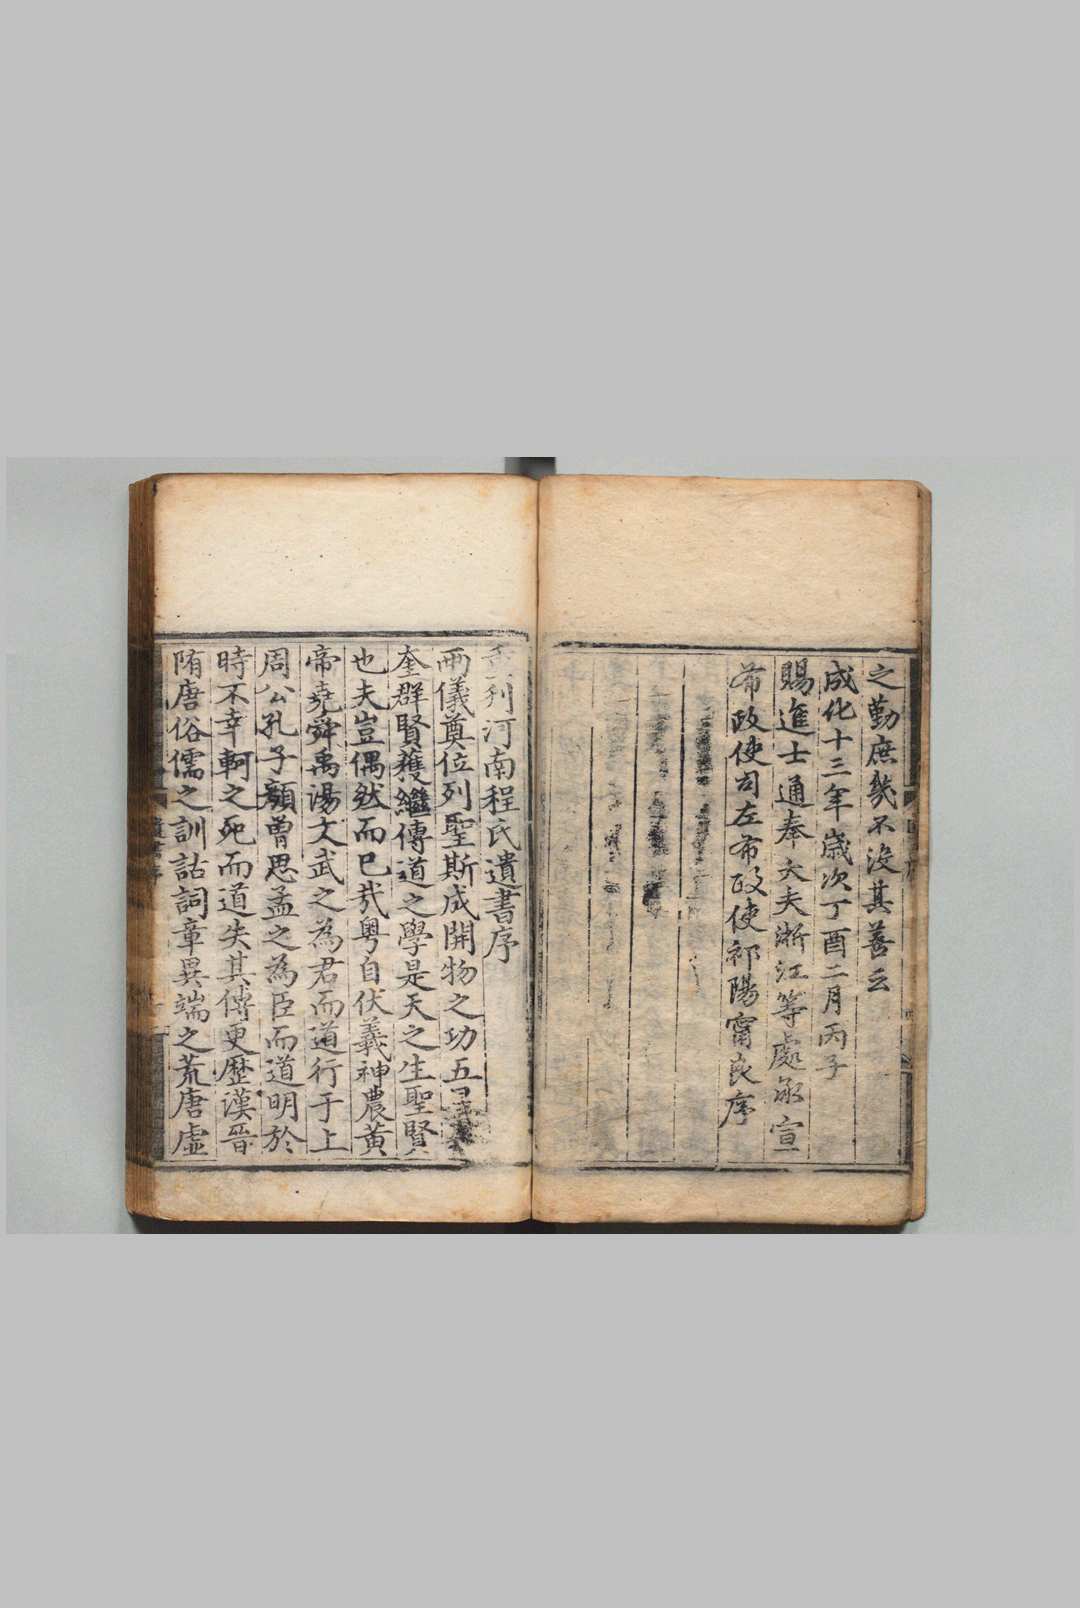 之勤庶幾不没其善云
成化十三年歳次丁酉二月丙子
賜進士通奉大夫浙江等處承宣
布政使司左布政使祁陽甯良序
列河南程氏遺書序
兩儀奠位列聖斯成開物之功五星
奎群賢獲繼傳道之學是天之生聖賢
也夫豈偶然而已㢤粤自伏羲神農黃
帝堯舜禹湯文武之為君而道行于上
周公孔子顔曾思孟之為臣而道明於
時不幸軻之死而道失其傳更歷漢晉
隋唐俗儒之訓詁詞章異端之荒唐虛